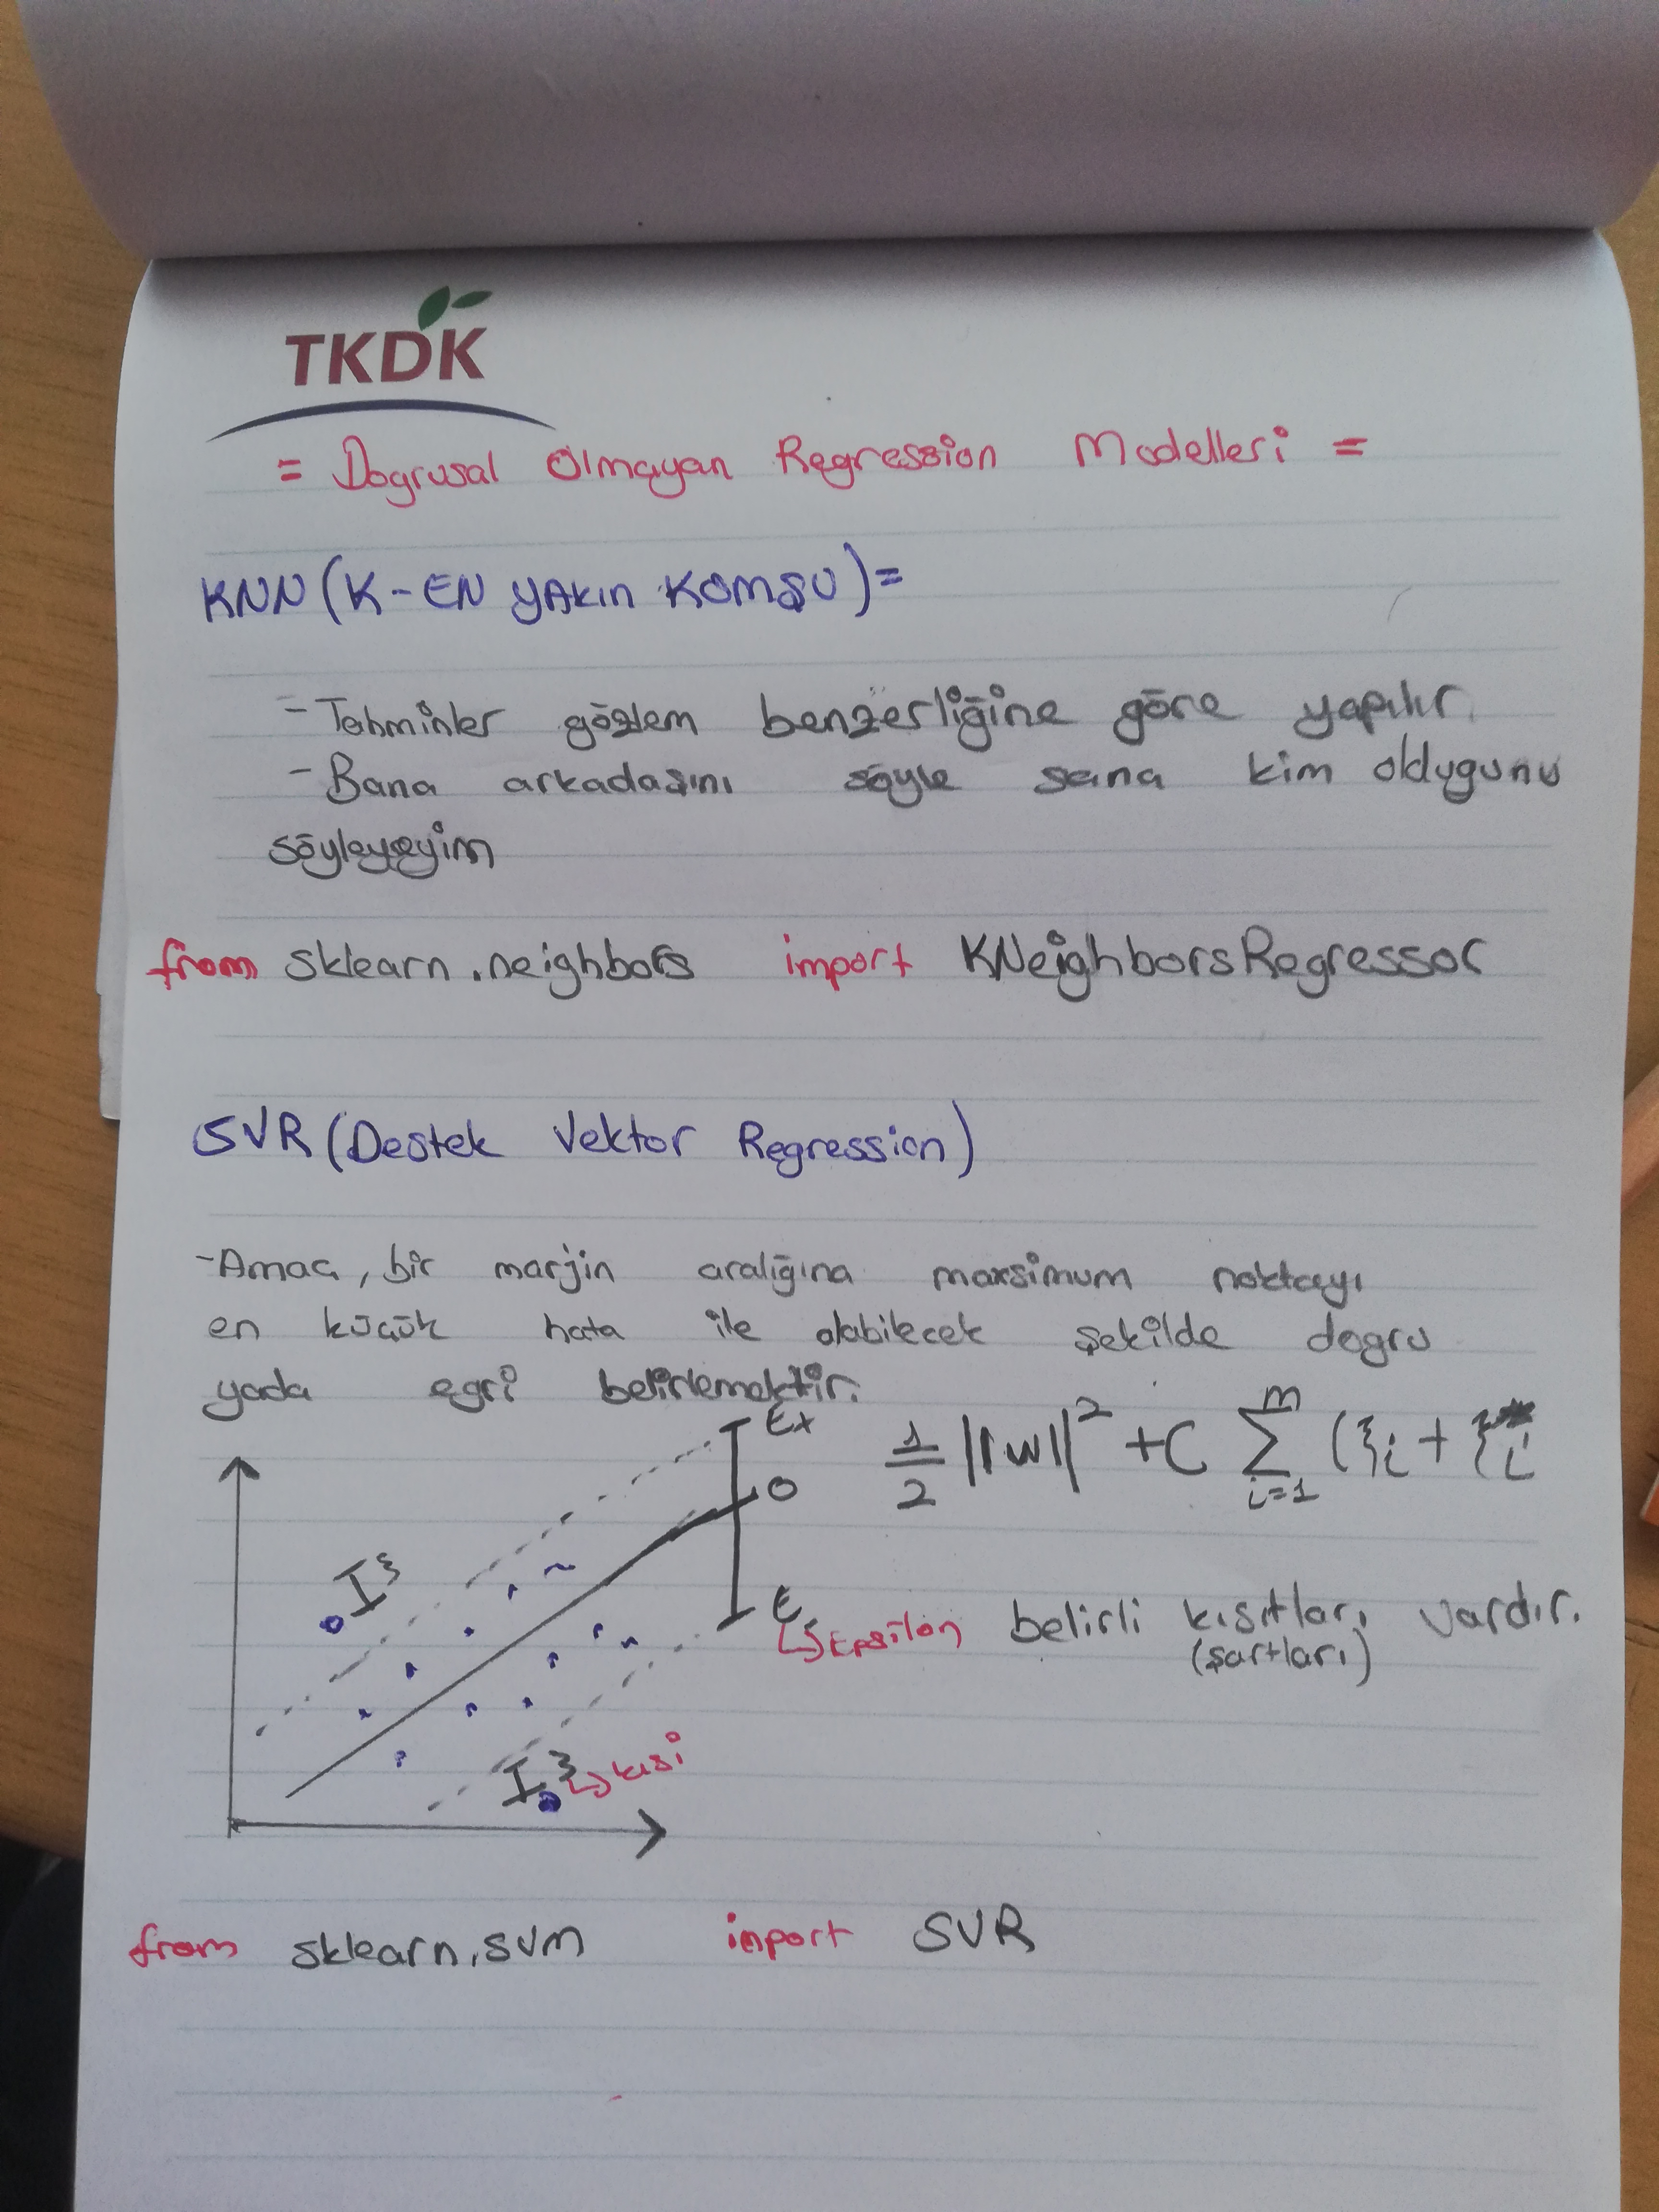 TKDK
= Dogrusal Olmayan Regression Modelleri =
KNN (K-EN YAKın KOMŞU)=
- Tahminler gözlem benzerliğine göre yapılır.
- Bana arkadaşını söyle sana kim oldugunu
söyleyeyim
from sklearn.neighbors import KNeighborsRegressor
SVR (Destek Vektor Regression)
- Amaç, bir marjin aralığına maxsimum noktayı
en küçük hata ile alabilecek şekilde dogru
yada egri belirlemektir.
E+
0
1/2 ||w||² + C Σ m i=1 (ξi + ξi*
ξ
E
↳ Epsilon belirli kısıtları vardır.
(şartları)
ξ ↳ kısi
from sklearn.svm import SVR